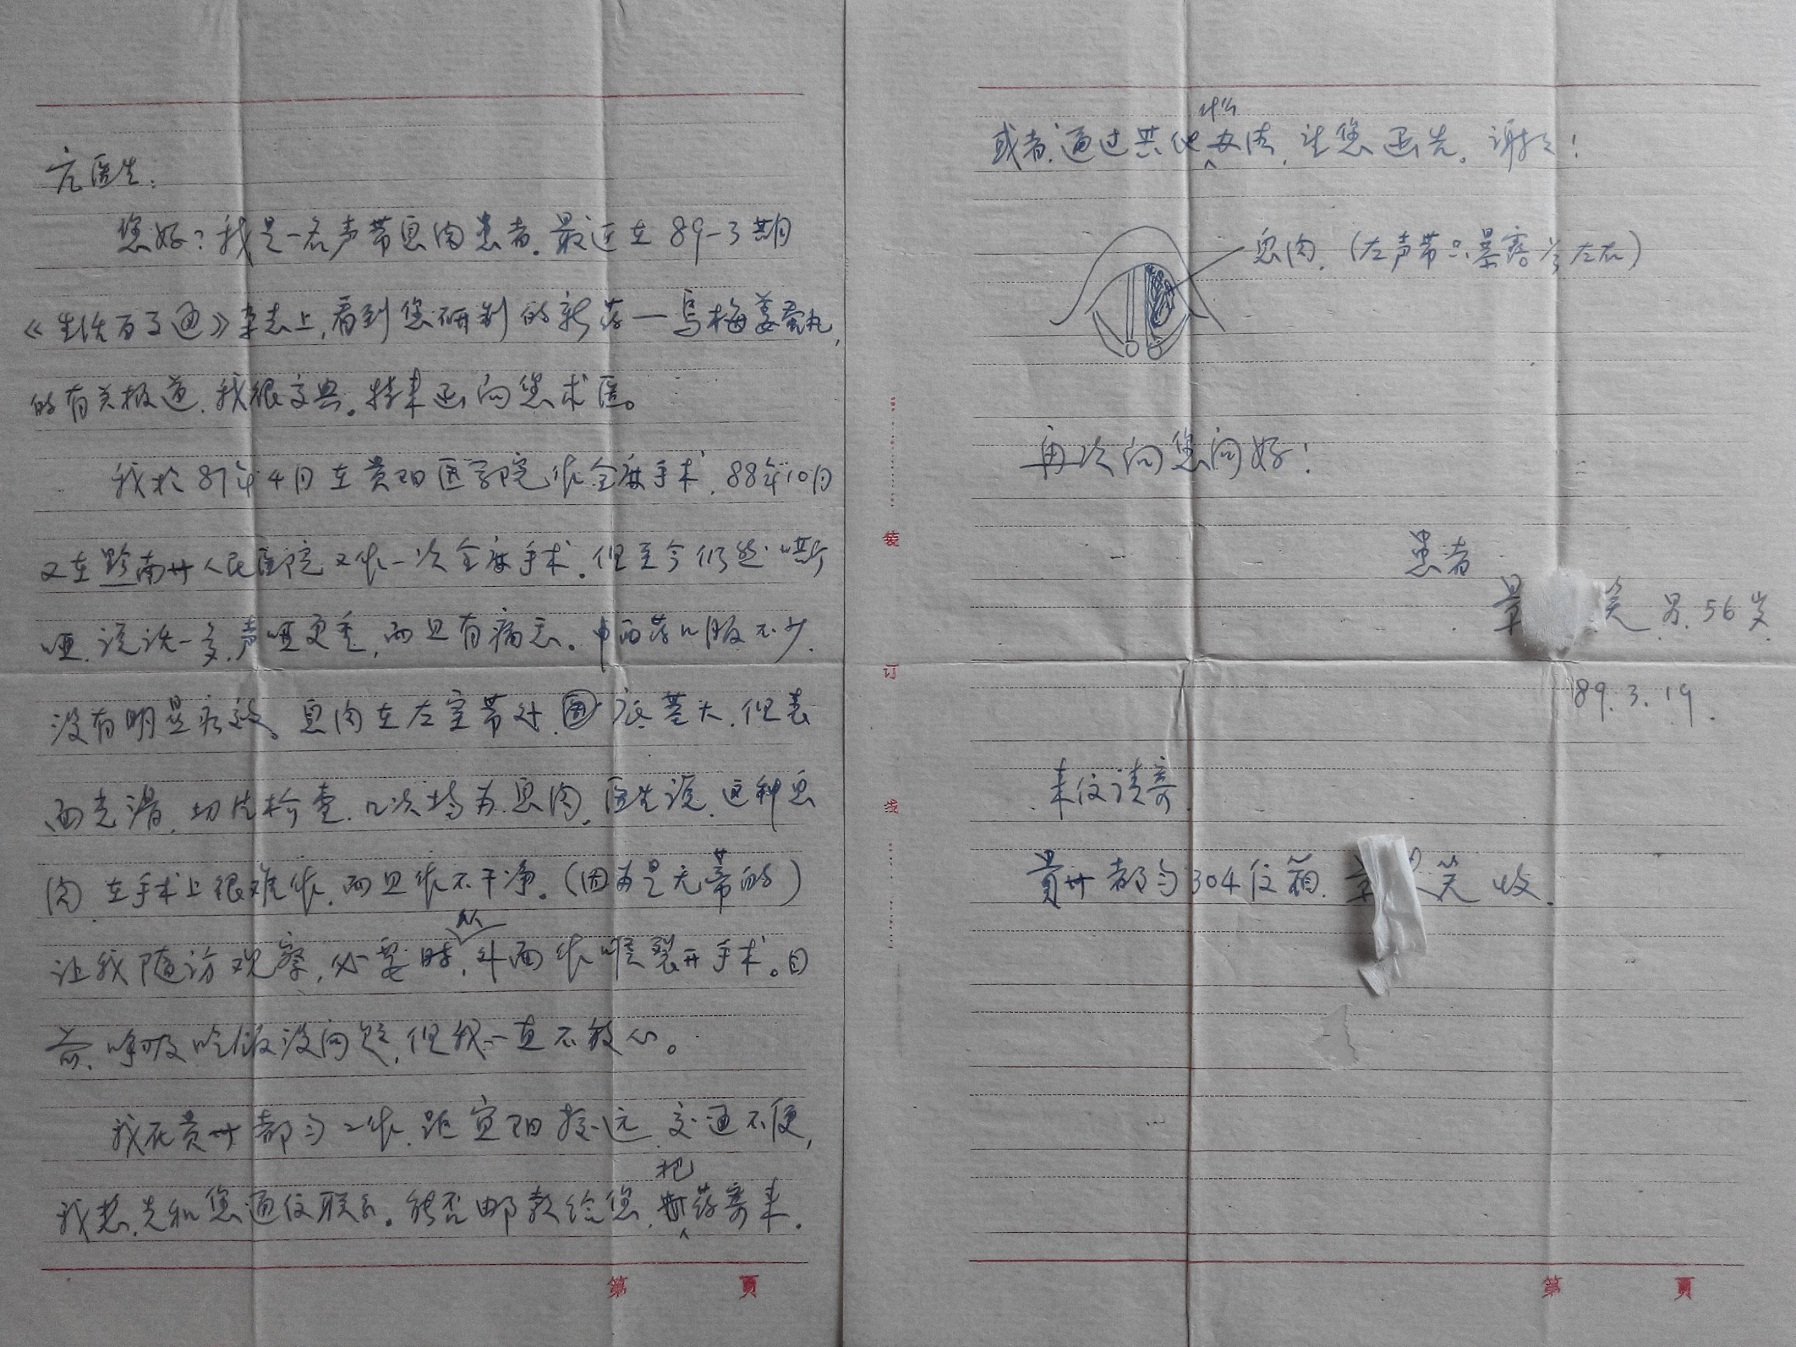 亢医生：
您好？我是一名声带息肉患者。最近在89-3期
《生活百事通》杂志上，看到您研制的新药一乌梅姜蚕丸，
的有关报道，我很高兴。特来函向您求医。
我于87年4月在贵阳医学院作全麻手术，88年10月
又在黔南州人民医院又作一次全麻手术。但至今仍然嘶
哑，说话一多，声哑更重，而且有痛感。中西药口服不少，
没有明显疗效。息肉在左室带处，底基大，但表
面光滑，切片检查，几次均为息肉，医生说，这种息
肉，在手术上很难作，而且作不干净。（因为是无蒂的）
让我随访观察，必要时，从外面作喉裂开手术。目
前，呼吸吃饭没问题，但我一直不放心。
我在贵州都匀工作，距宜阳较远，交通不便，
我想，先和您通信联系。能否邮款给您，把药寄来。
第 页
或者，通过其他什么办法，请您函告。谢谢！
息肉，（左声带只暴露⅓左右）
再次向您问好！
患者
笑 男.56岁
89.3.19.
来信请寄
贵州都匀304信箱 笑 收.
装
订
线
第 页